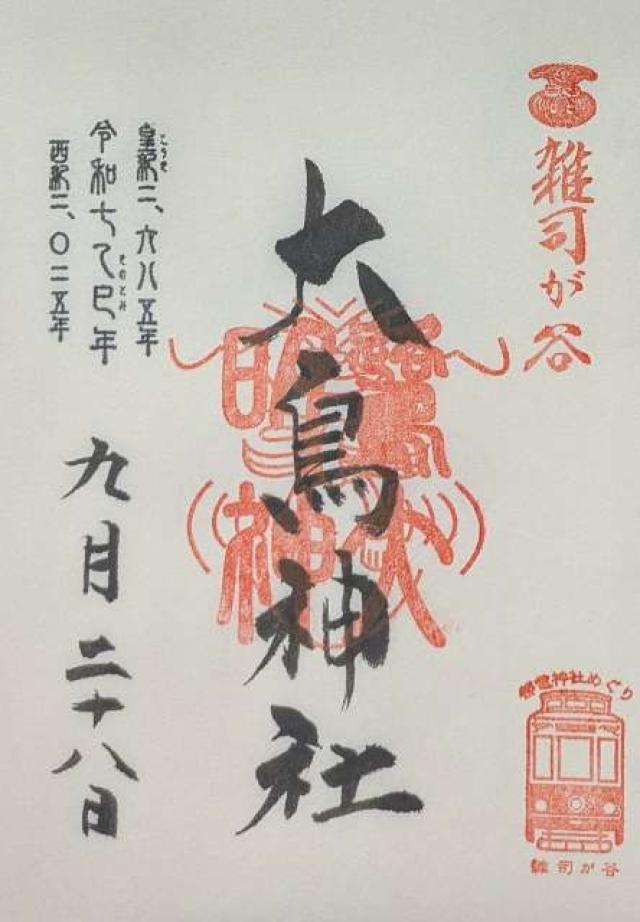 雑司が谷
大鳥神社
皇紀二、六八五年
こうき
令和七乙巳年
きのとみ
西紀二、〇二五年
九月二十八日
御電神社めぐり
雑司が谷